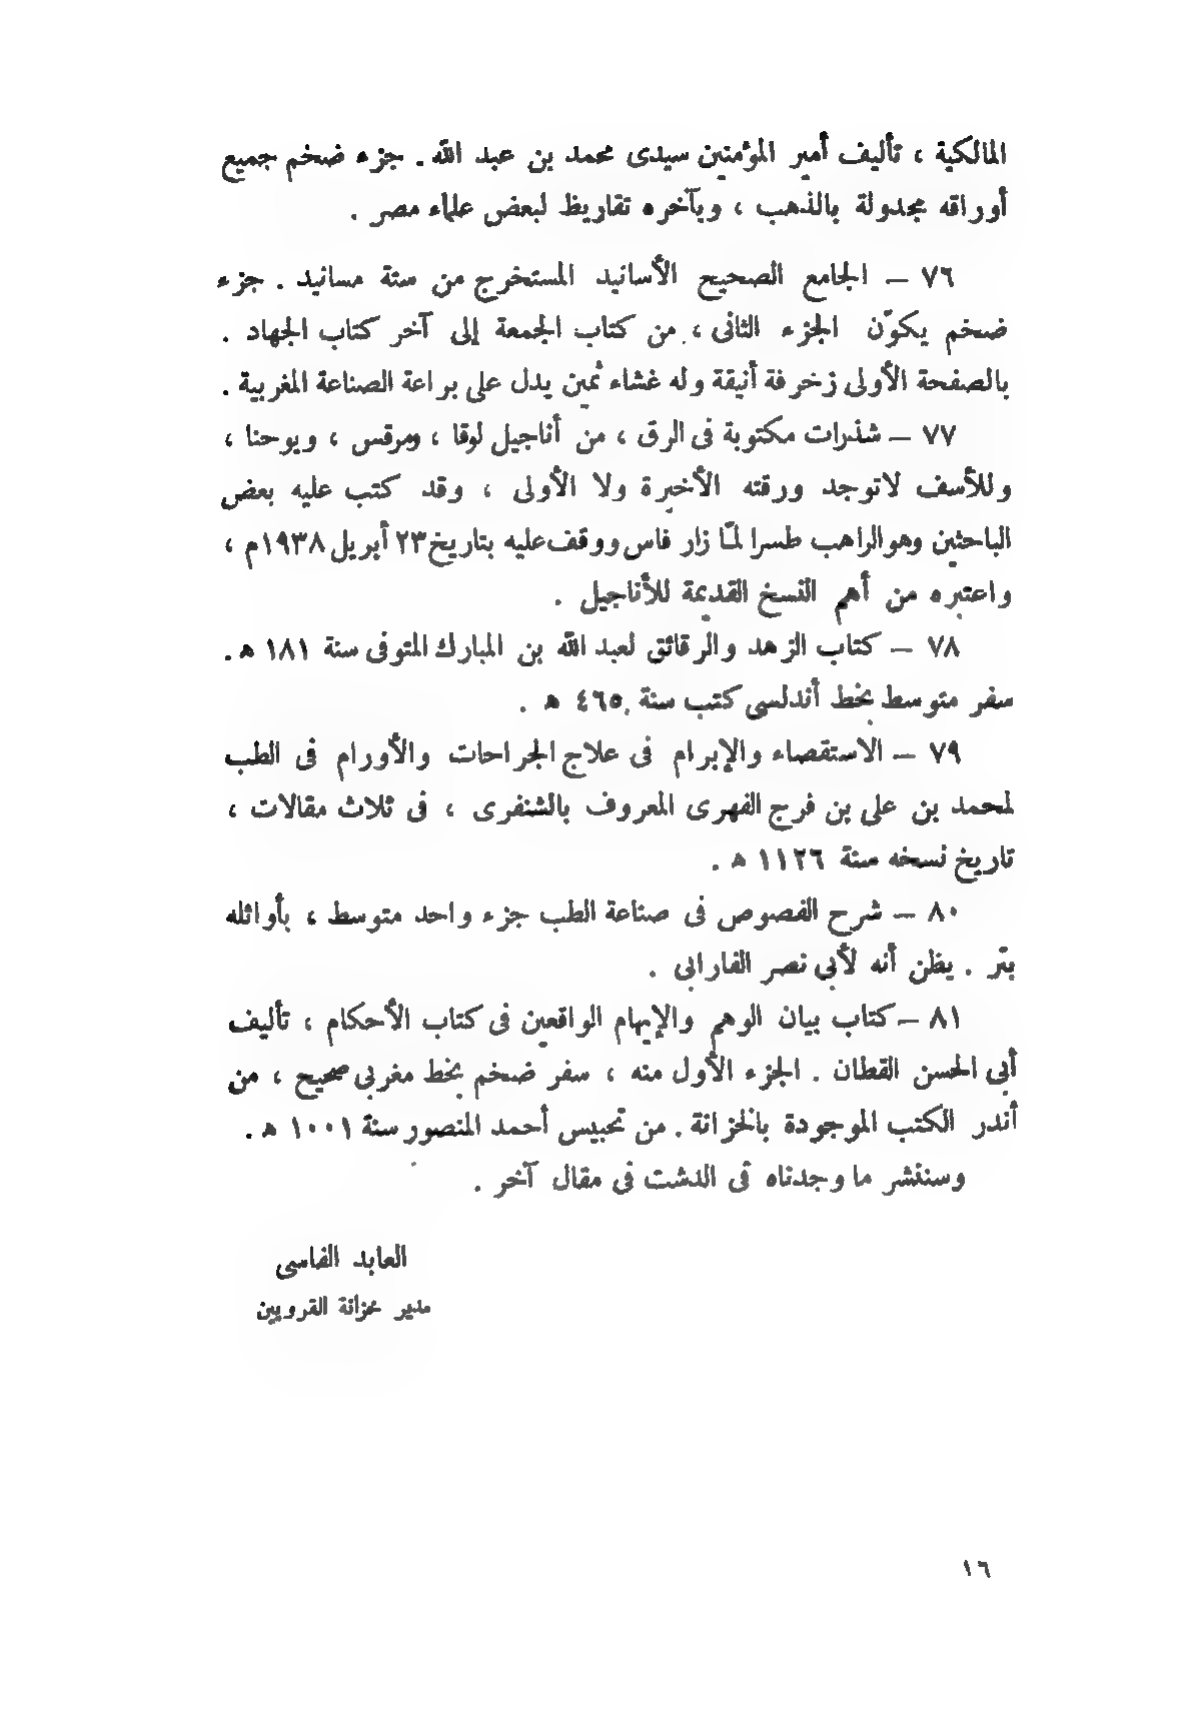 المالكية ، تأليف أمير المؤمنين سيدى محمد بن عبد الله . جزء ضخم جميع
أوراقه مجدولة بالذهب ، وبآخره تقاريظ لبعض علماء مصر .
٧٦ — الجامع الصحيح الأسانيد المستخرج من ستة مسانيد . جزء
ضخم يكوّن الجزء الثانى ، من كتاب الجمعة إلى آخر كتاب الجهاد .
بالصفحة الأولى زخرفة أنيقة وله غشاء ثمين يدل على براعة الصناعة المغربية .
٧٧ — شذرات مكتوبة فى الرق ، من أناجيل لوقا ، ومرقس ، ويوحنا ،
وللأسف لاتوجد ورقته الأخيرة ولا الأولى ، وقد كتب عليه بعض
الباحثين وهو الراهب طسرا لمّا زار فاس ووقف عليه بتاريخ ٢٣ أبريل ١٩٣٨م ،
واعتبره من أهم النسخ القديمة للأناجيل .
٧٨ — كتاب الزهد والرقائق لعبد الله بن المبارك المتوفى سنة ١٨١ ه .
سفر متوسط بخط أندلسى كتب سنة ٤٦٥ ه .
٧٩ — الاستقصاء والإبرام فى علاج الجراحات والأورام فى الطب
لمحمد بن على بن فرج الفهرى المعروف بالشنفرى ، فى ثلاث مقالات ،
تاريخ نسخه سنة ١١٢٦ ه .
٨٠ — شرح الفصوص فى صناعة الطب جزء واحد متوسط ، بأوائله
بتر . يظن أنه لأبي نصر الفارابى .
٨١ — كتاب بيان الوهم والإيهام الواقعين فى كتاب الأحكام ، تأليف
أبى الحسن القطان . الجزء الأول منه ، سفر ضخم بخط مغربى صحيح ، من
أندر الكتب الموجودة بالخزانة . من تحبيس أحمد المنصور سنة ١٠٠١ ه .
وسننشر ما وجدناه فى الدشت فى مقال آخر .
العابد الفاسى
مدير خزانة القرويين
١٦